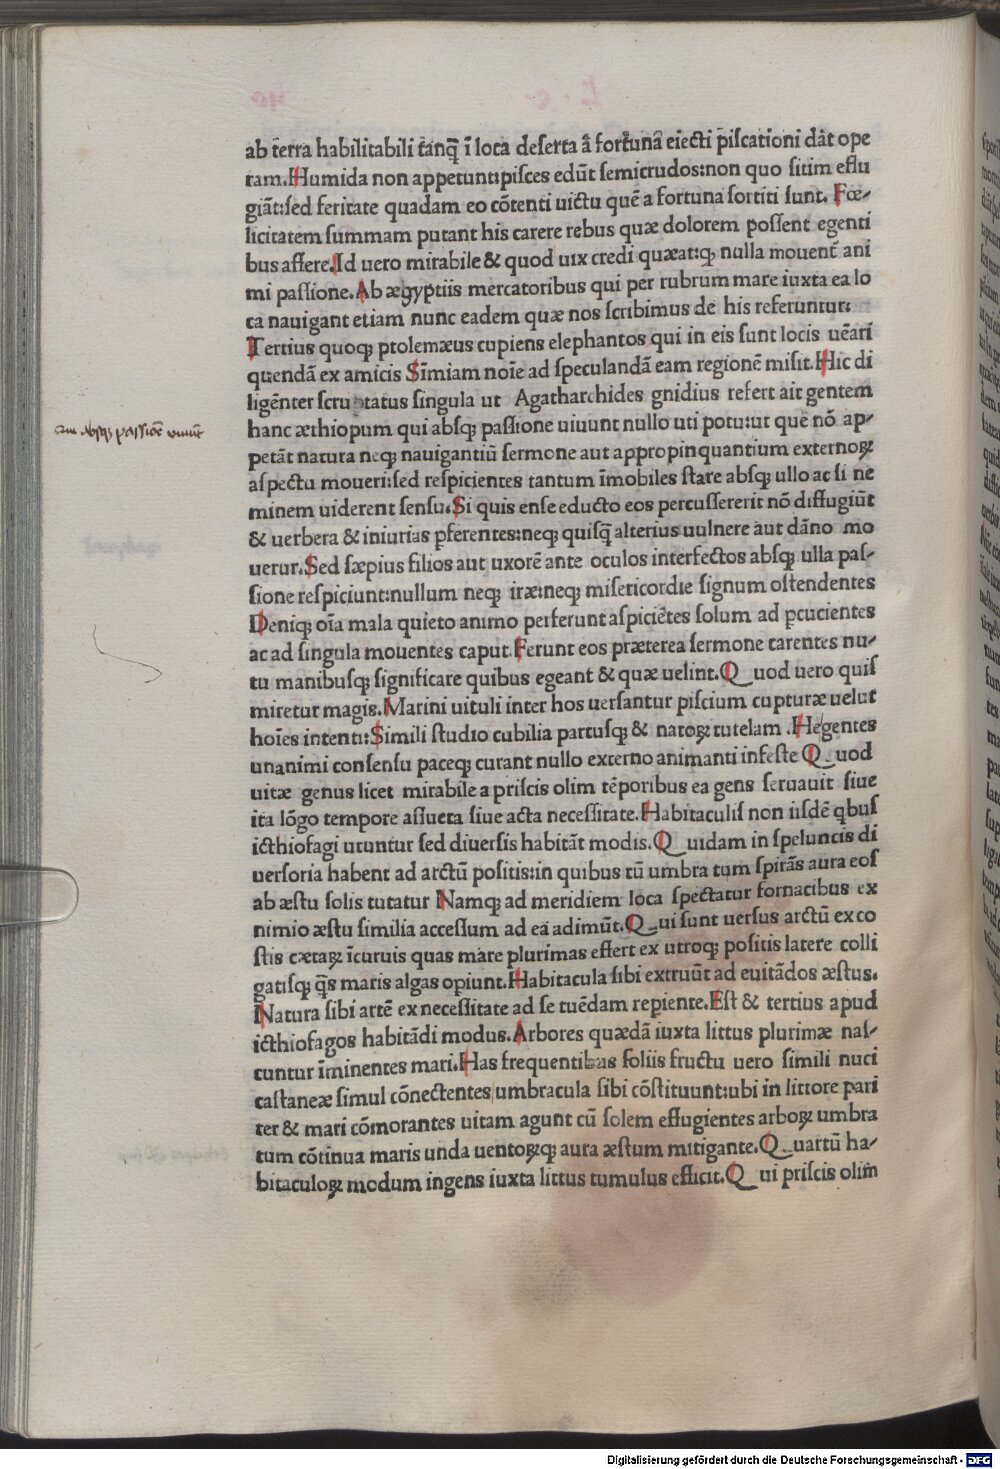 ab terra habilitabili tanq̃ ĩ loca deserta â fortuna eiecti piscationi dāt ope
ram. Humida non appetunt: pisces edūt semicrudos: non quo sitim effu
giāt: sed feritate quadam eo cõtenti uictu quē a fortuna sortiti sunt. Foe-
licitatem summam putant his carere rebus quæ dolorem possent egenti
bus afferre. Id uero mirabile & quod uix credi quæat: qꝫ nulla mouent̃ ani
mi passione. Ab ægyptiis mercatoribus qui per rubrum mare iuxta ea lo
ca nauigant etiam nunc eadem quæ nos scribimus de his referuntur:
Tertius quoqꝫ ptolemæus cupiens elephantos qui in eis sunt locis uēari
quendā ex amicis Simiam noīe ad speculandā eam regionē misit. Hic di
ligēnter scruptatus singula ut Agatharchides gnidius refert ait gentem
hanc æthiopum qui absqꝫ passione uiuunt nullo uti potu: ut quē nō ap-
petāt natura neqꝫ nauigantiū sermone aut appropinquantium externoꝝ
aspectu moueri: sed respicientes tantum īmobiles stare absqꝫ ullo ac si ne
minem uiderent sensu. Si quis ense educto eos percussererit nō diffugiūt
& uerbera & iniurias ꝑferentes: neqꝫ quisq̃ alterius uulnere aut dāno mo
uetur. Sed sæpius filios aut uxorē ante oculos interfectos absqꝫ ulla pas-
sione respiciunt: nullum neqꝫ iræ: neqꝫ misericordie signum ostendentes
Deniqꝫ oīa mala quieto animo perferunt aspiciētes solum ad ꝑcucientes
ac ad singula mouentes caput. Ferunt eos præterea sermone carentes nu-
tu manibusqꝫ significare quibus egeant & quæ uelint. Quod uero quis
miretur magis. Marini uituli inter hos uersantur piscium cupturæ uelut
hoīes intenti: Simili studio cubilia partusqꝫ & natoꝝ tutelam. Hegentes
unanimi consensu paceqꝫ curant nullo externo animanti infeste Quod
uitæ genus licet mirabile a priscis olim tēporibus ea gens seruauit siue
ita lōgo tempore assueta siue acta necessitate. Habitaculis non iisdē qbus
icthiofagi utuntur sed diuersis habitāt modis. Quidam in speluncis di
uersoria habent ad arctū positis: in quibus tū umbra tum spirās aura eos
ab æstu solis tutatur Namqꝫ ad meridiem loca spectatur fornacibus ex
nimio æstu similia accessum ad ea adimūt. Qui sunt uersus arctū ex co
stis cætaꝝ īcuruis quas mare plurimas effert ex utroqꝫ positis latere colli
gatisqꝫ q̃s maris algas opiunt. Habitacula sibi extruūt ad euitādos æstus.
Natura sibi artē ex necessitate ad se tuēdam repiente. Est & tertius apud
icthiofagos habitādi modus. Arbores quædā iuxta littus plurimæ nas-
cuntur īminentes mari. Has frequentibus foliis fructu uero simili nuci
castaneæ simul cōnectentes umbracula sibi cōstituunt: ubi in littore pari
ter & mari cōmorantes uitam agunt cū solem effugientes arboꝝ umbra
tum cōtinua maris unda uentoꝝqꝫ aura æstum mitigante. Quartū ha-
bitaculoꝝ modum ingens iuxta littus tumulus efficit. Qui priscis olim
qui absqꝫ passiōe uiuūt
Digitalisierung gefördert durch die Deutsche Forschungsgemeinschaft - DFG